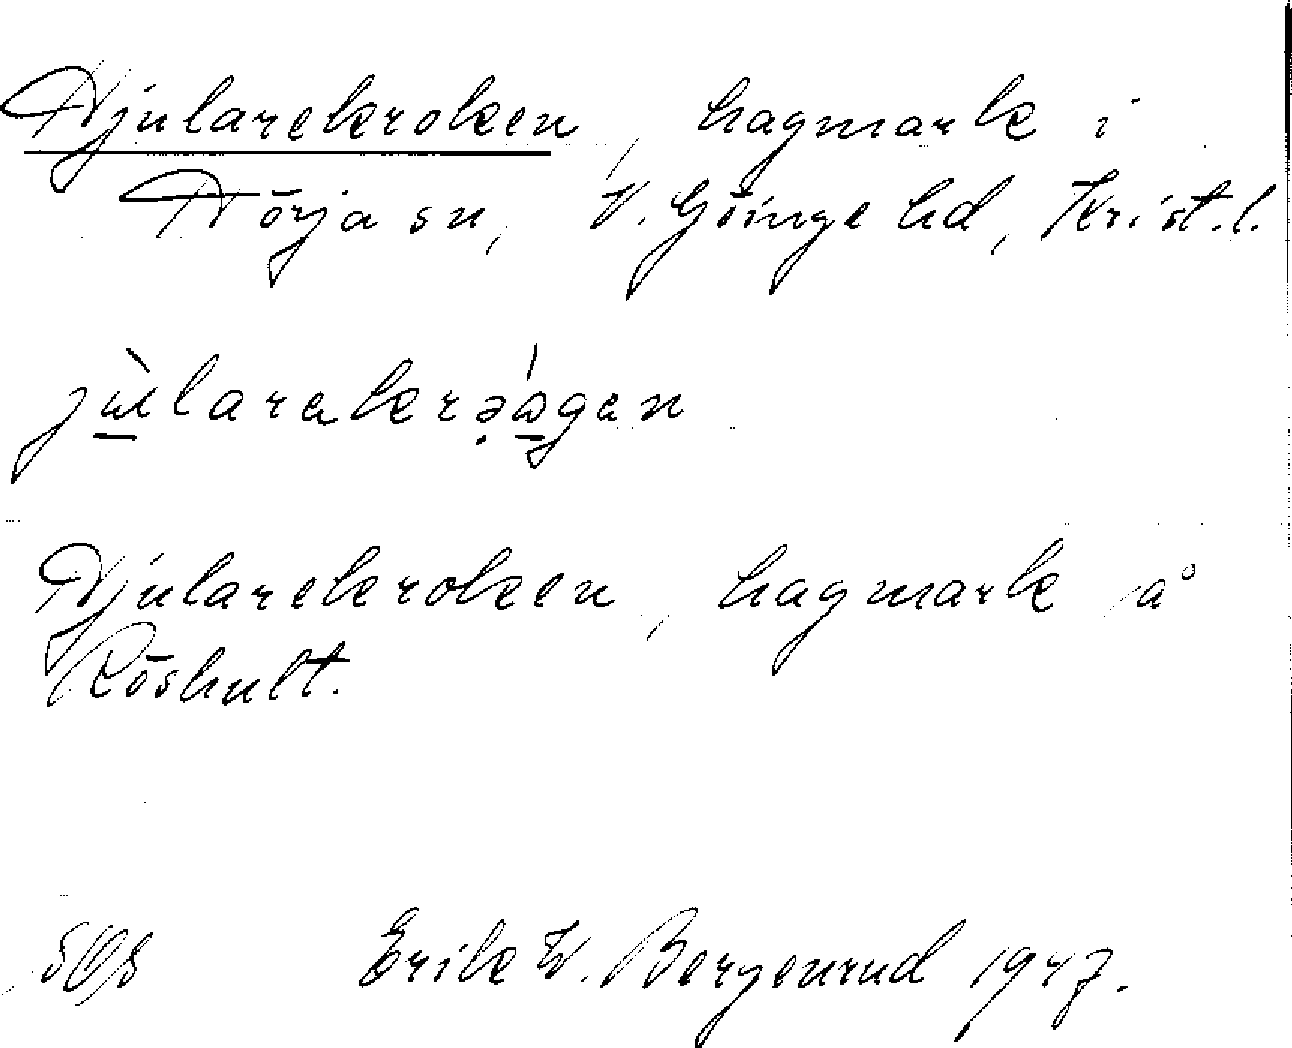 Hjularekroken, hagmark i
Hörja sn, V. Göinge hd, Krist.l.
jùlarekrəágen
Hjularekroken, hagmark å
Röshult.
Erik W. Bergenrud 1947.